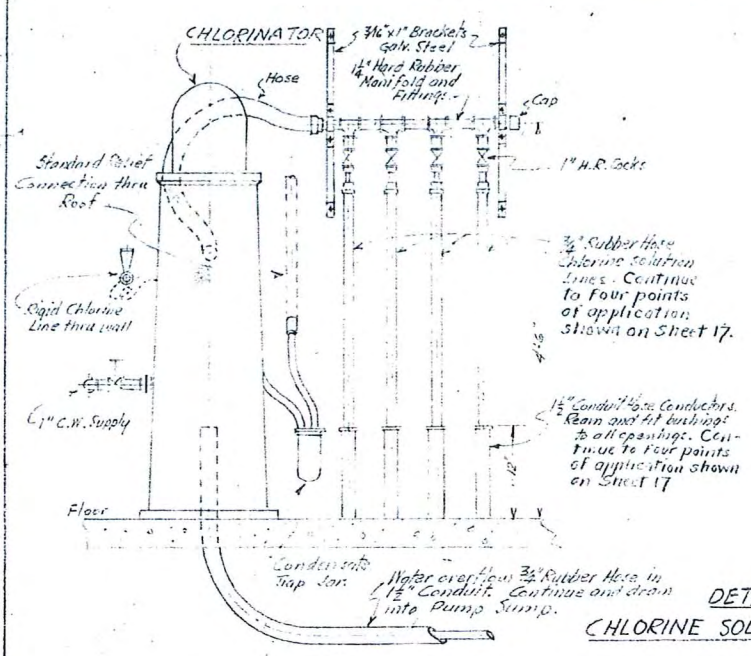 CHLORINATOR
3/16" x 1" Brackets
Galv. Steel
1¼" Hard Rubber
Manifold and
Fittings.
Hose
Cap
1" H.R. Cocks
Standard Relief
Connection thru
Roof
Rigid Chlorine
Line thru wall
1" C.W. Supply
¾" Rubber Hose
Chlorine solution
Lines. Continue
to four points
of application
shown on Sheet 17.
4'-6"
1½" Conduit Hose Conductors.
Ream and fit bushings
to all openings. Con-
tinue to four points
of application shown
on Sheet 17
12"
Floor
Condensate
Trap Jar.
Water overflow ¾" Rubber Hose in
1½" Conduit. Continue and drain
into Pump Sump.
DET
CHLORINE SOL